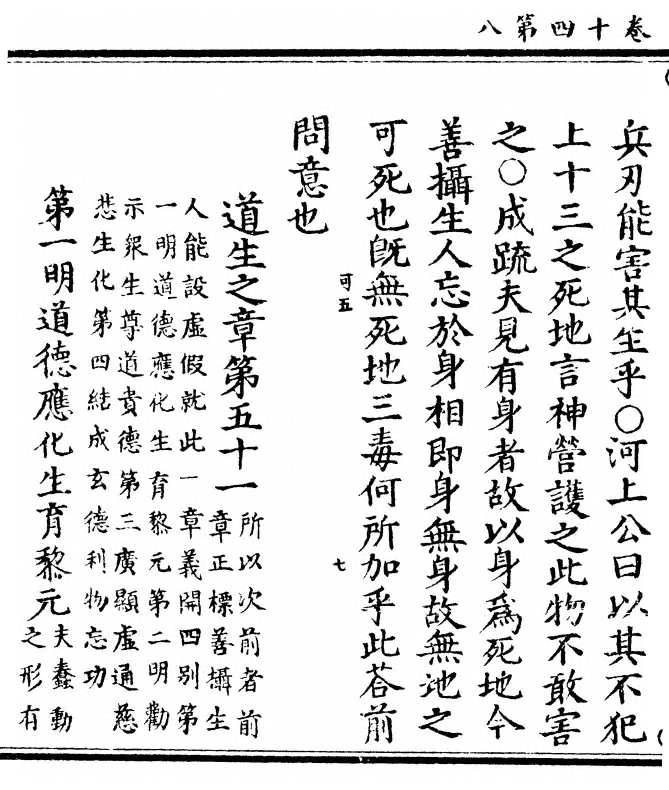 卷十四第八
兵刃能害其生乎〇河上公曰以其不犯
上十三之死地言神營護之此物不敢害
之〇成疏夫見有身者故以身爲死地今
善攝生人忘於身相即身無身故無地之
可死也旣無死地三毒何所加乎此荅前
可五
七
問意也
道生之章第五十一
所以次前者前
章正標善攝生
人能設虛假就此一章義開四別第
一明道德應化生育黎元第二明勸
示衆生尊道貴德第三廣顯虛通慈
悲生化第四結成玄德利物忘功
第一明道德應化生育黎元
夫蠢動
之形有